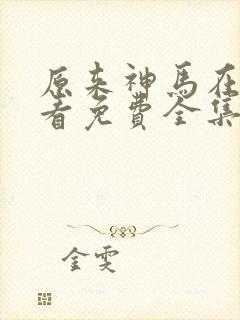 原来神马在
看免费全集
金雯